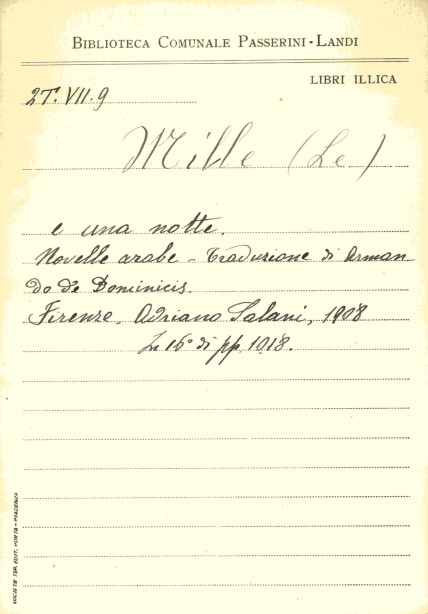 BIBLIOTECA COMUNALE PASSERINI-LANDI
LIBRI ILLICA
2T.VII.9
Mille (Le)
e una notte.
Novelle arabe - Traduzione di Arman-
do De Dominicis.
Firenze. Adriano Salani, 1908
In 16° di pp. 1018.
SOCIETÀ TIP. EDIT. PORTA - PIACENZA